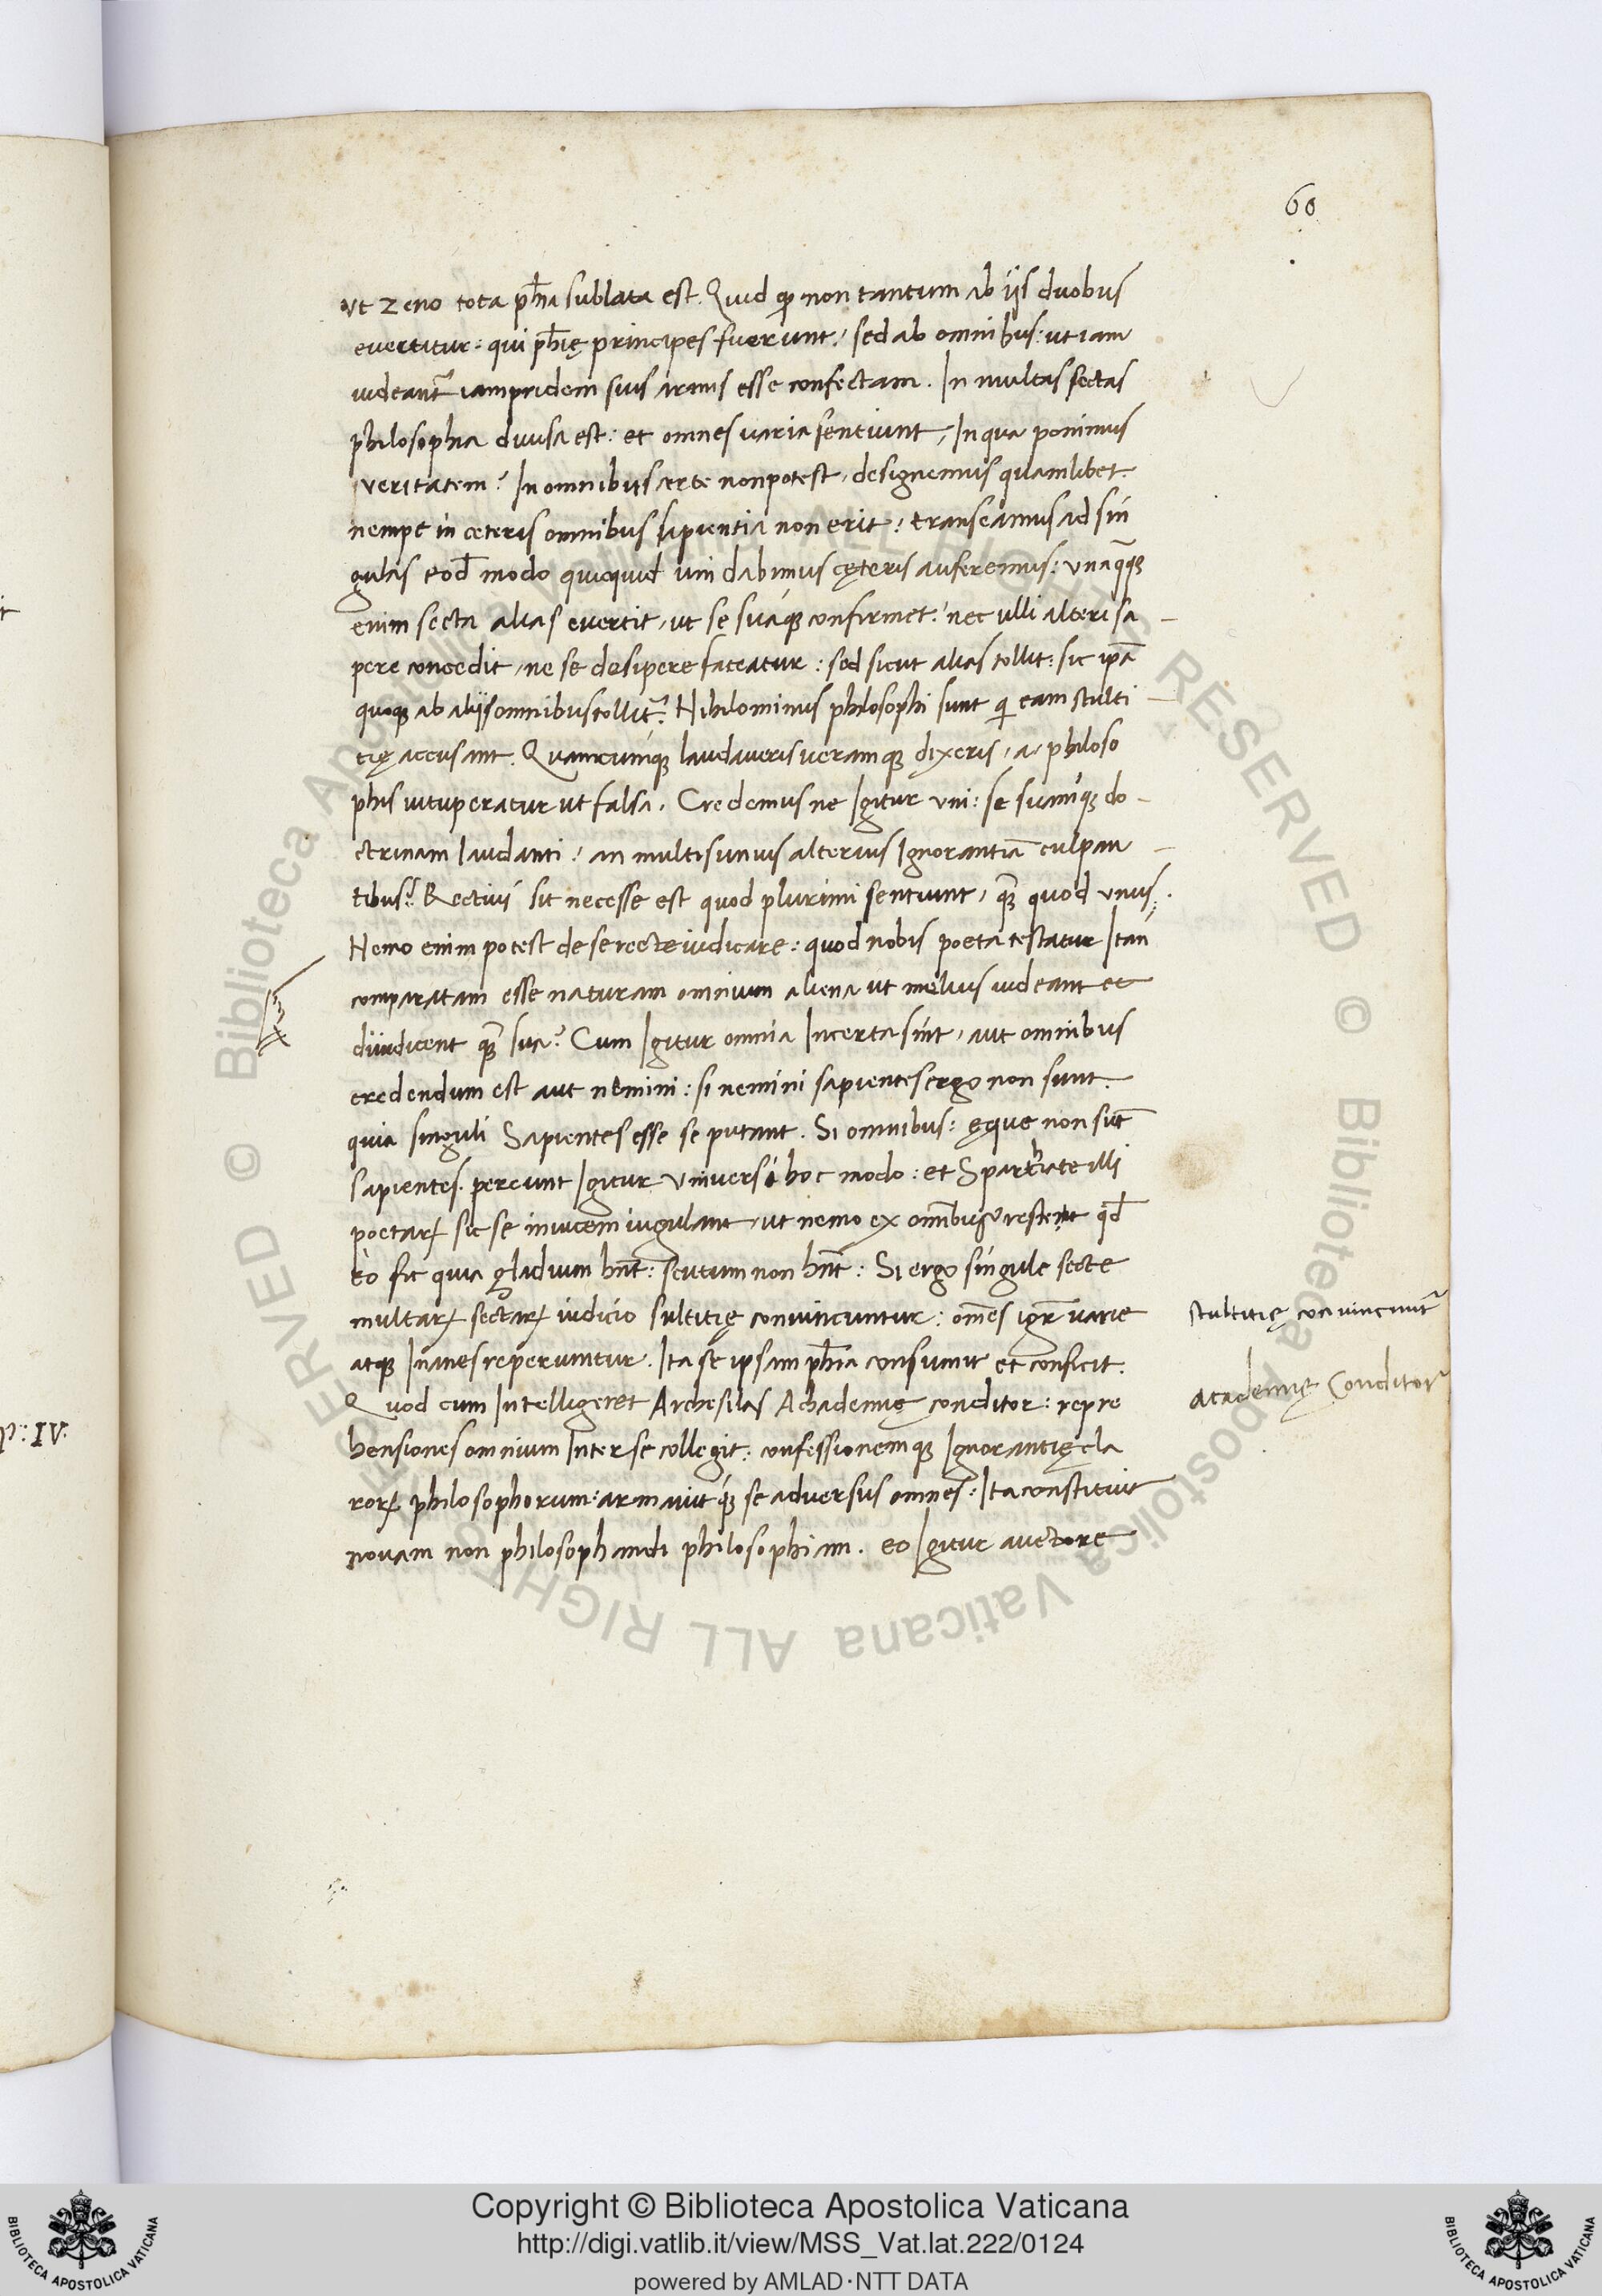 60
ut zeno tota ph̄ia sublata est. Quid qͥ non tantum ab ijs duobus
evertitur: qui ph̄ię principes fuerunt: sed ab omnibus: ut iam
videant᷑ iampridem suis armis esse confectam. In multas sectas
philosophia divisa est: et omnes varia sentiunt, In qua ponimus
veritatem? In omnibus certe non potest, designemus quamlibet.
nempe in ceteris omnibus sapientia non erit: transeamus ad sin
gulas eod̄ modo quicquid uni dabimus cęteris auferemus: unaq̄qꝫ
enim secta alias evertit, ut se suáqꝫ confirmet: nec ulli alteri sa-
pere concedit, ne se desipere fateatur: sed sicut alias tollit: sic ip̄a
quoqꝫ ab alijs omnibus tollit᷑: Nihilominus philosophi sunt qͥ eam stulti-
tię accusant. Quamcúmqꝫ laudaveris veramqꝫ dixeris, a, philoso
phis vituperatur ut falsa. Credemus ne Igitur uni: se suámqꝫ do-
ctrinam laudanti: an multis unius alterius Ignorantiā culpan-
tibus? Rectius sit necesse est quod plurimi sentiunt, qꝫ̄ quod unus.
Nemo enim potest de se recte iudicare: quod nobis poeta testatur Itan
comparatam esse naturam omnium aliena ut melius videant et
diiudicent qꝫ̄ sua? Cum Igitur omnia Incerta sint, aut omnibus
credendum est aut nemini: si nemini sapientes ergo non sunt.
quia singuli Sapientes esse se putant. Si omnibus: ęque non sūt
sapientes. pereunt Igitur universi hoc modo: et Sparthiate illi
poetarꝝ sic se invicem iugulant, ut nemo ex omībus restent qd̄
eo fit quia gladium hn̄t: scutum non hn̄t: Si ergo singule secte
multarꝝ sectarꝝ iudicio sultitię convincuntur: om̄es igr̄ varie
stultitię convincunt᷑
atqꝫ Inanes reperiuntur. Ita se ipsam ph̄ia consumit et conficit.
Quod cum Intelligeret Archesilas Achademię conditor: repre
academię Conditor
hensiones omnium Inter se collegit: confessionemqꝫ Ignorantię cla
rorꝝ philosophorum: armavitqꝫ se adversus omnes: Ita constituit
novam non philosophandi philosophiam. eo Igitur auctore
p: IV:
Copyright © Biblioteca Apostolica Vaticana
http://digi.vatlib.it/view/MSS_Vat.lat.222/0124
powered by AMLAD·NTT DATA
BIBLIOTECA APOSTOLICA VATICANA
BIBLIOTECA APOSTOLICA VATICANA
© Biblioteca Apostolica Vaticana ALL RIGHTS RESERVED
© Biblioteca Apostolica Vaticana ALL RIGHTS RESERVED